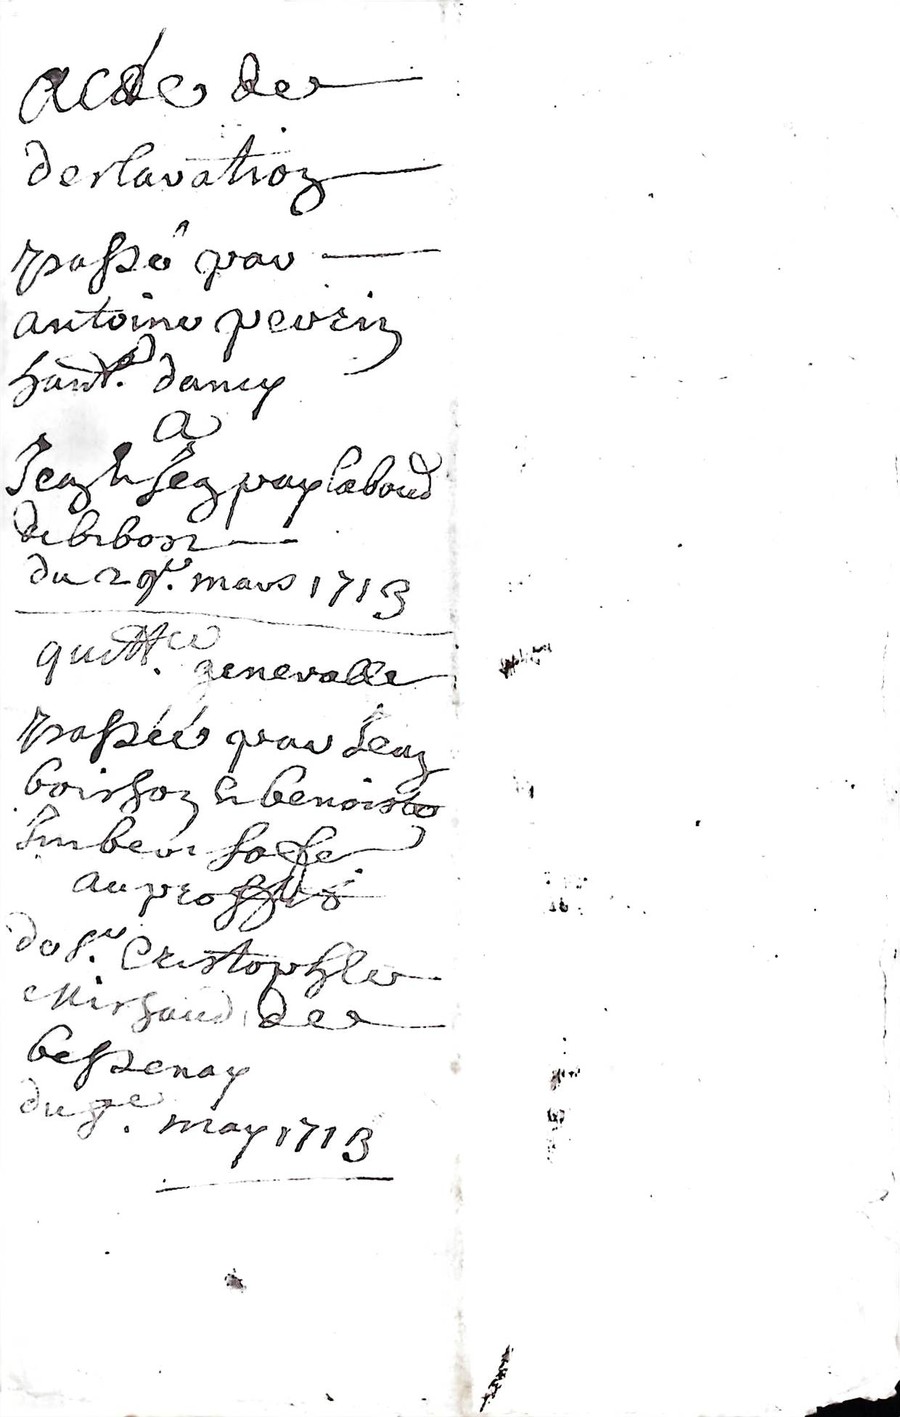 acte de
declaration
passé par
antoine perrin
hant. dancy
a
Jean
de bibost
du 29e. mars 1713
quittce generalle
passéé par Jean
boisson & benoiste
Imbert sa fe
au proffit
de sr. Cristophle
Michaud de
bessenay
du 9e. may 1713